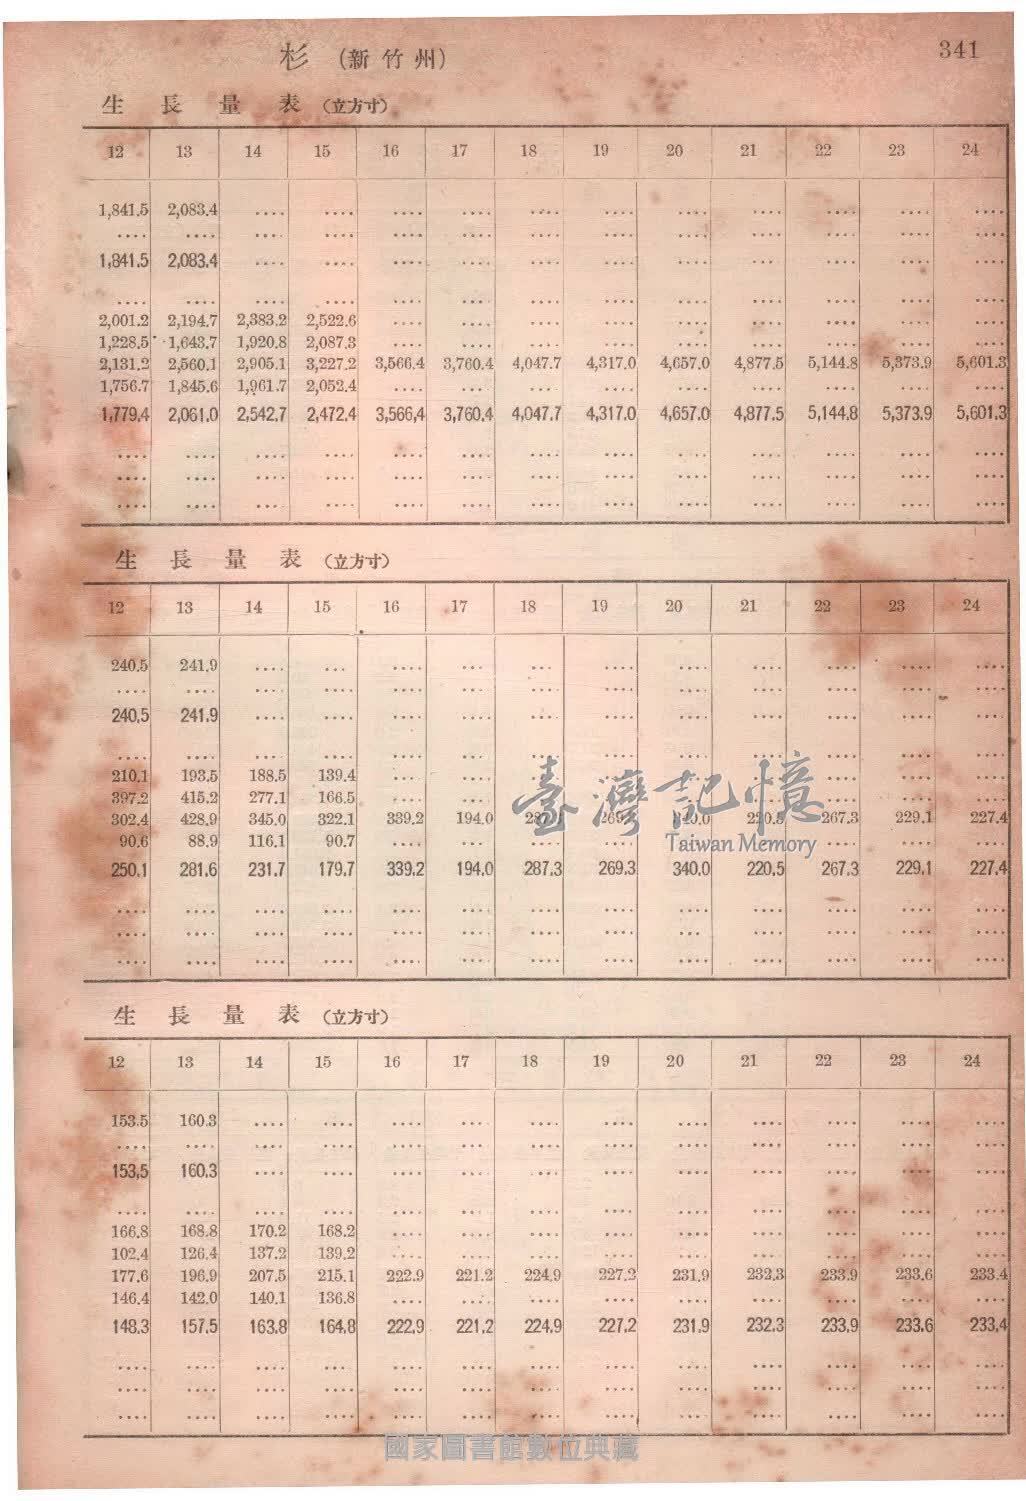 341
杉 (新竹州)
生長量表 (立方寸)
12 13 14 15 16 17 18 19 20 21 22 23 24
1,841.5 2,083.4 .... .... .... .... .... .... .... .... .... .... ....
.... .... .... .... .... .... .... .... .... .... .... .... ....
1,841.5 2,083.4 .... .... .... .... .... .... .... .... .... .... ....
.... .... .... .... .... .... .... .... .... .... .... .... ....
2,001.2 2,194.7 2,383.2 2,522.6 .... .... .... .... .... .... .... .... ....
1,228.5 1,643.7 1,920.8 2,087.3 .... .... .... .... .... .... .... .... ....
2,131.2 2,560.1 2,905.1 3,227.2 3,566.4 3,760.4 4,047.7 4,317.0 4,657.0 4,877.5 5,144.8 5,373.9 5,601.3
1,756.7 1,845.6 1,961.7 2,052.4 .... .... .... .... .... .... .... .... ....
1,779.4 2,061.0 2,542.7 2,472.4 3,566.4 3,760.4 4,047.7 4,317.0 4,657.0 4,877.5 5,144.8 5,373.9 5,601.3
.... .... .... .... .... .... .... .... .... .... .... .... ....
.... .... .... .... .... .... .... .... .... .... .... .... ....
.... .... .... .... .... .... .... .... .... .... .... .... ....
生長量表 (立方寸)
12 13 14 15 16 17 18 19 20 21 22 23 24
240.5 241.9 .... ... .... ... ... .... .... .... .... .... ....
.... .... .... .... .... .... .... .... .... .... .... .... ....
240.5 241.9 .... .... .... .... .... .... .... .... .... .... ....
.... .... .... .... .... .... .... .... .... .... .... .... ....
210.1 193.5 188.5 139.4 .... .... .... .... .... .... .... .... ....
397.2 415.2 277.1 166.5 .... .... .... .... .... .... .... .... ....
302.4 428.9 345.0 322.1 339.2 194.0 287.3 269.3 340.0 220.5 267.3 229.1 227.4
90.6 88.9 116.1 90.7 .... .... .... .... .... .... .... .... ....
250.1 281.6 231.7 179.7 339.2 194.0 287.3 269.3 340.0 220.5 267.3 229.1 227.4
.... .... .... .... .... .... .... .... .... .... .... .... ....
.... .... .... .... .... .... .... .... .... .... .... .... ....
.... .... .... .... .... .... .... .... .... .... .... .... ....
臺灣記憶
Taiwan Memory
生長量表 (立方寸)
12 13 14 15 16 17 18 19 20 21 22 23 24
153.5 160.3 .... .... .... .... .... .... .... .... .... .... ....
.... .... .... .... .... .... .... .... .... .... .... .... ....
153.5 160.3 .... .... .... .... .... .... .... .... .... .... ....
.... .... .... .... .... .... .... .... .... .... .... .... ....
166.8 168.8 170.2 168.2 .... .... .... .... .... .... .... .... ....
102.4 126.4 137.2 139.2 .... .... .... .... .... .... .... .... ....
177.6 196.9 207.5 215.1 222.9 221.2 224.9 227.2 231.9 232.3 233.9 233.6 233.4
146.4 142.0 140.1 136.8 .... .... .... .... .... .... .... .... ....
148.3 157.5 163.8 164.8 222.9 221.2 224.9 227.2 231.9 232.3 233.9 233.6 233.4
.... .... .... .... .... .... .... .... .... .... .... .... ....
.... .... .... .... .... .... .... .... .... .... .... .... ....
.... .... .... .... .... .... .... .... .... .... .... .... ....
國家圖書館數位典藏